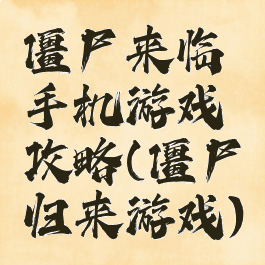 僵尸来临
手机游戏
攻略(僵尸
归来游戏)